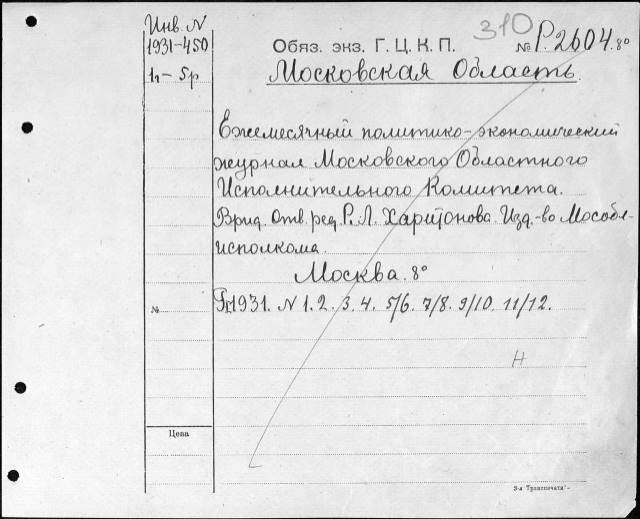 Инв. N
1931-450
1, - 5р
310
Обяз. экз. Г. Ц. К. П.
№ Р. 2604. 8°
Московская Область.
Ежемесячный политико-экономический
журнал Московского Областного
Исполнительного Комитета.
Врид. Отв. ред. Р. Л. Харитонова. Изд.-во Мособл-
исполкома.
Москва. 8°
№
1931. N 1. 2. 3. 4. 5/6. 7/8. 9/10. 11/12.
Н
Цена
3-я Транспечати